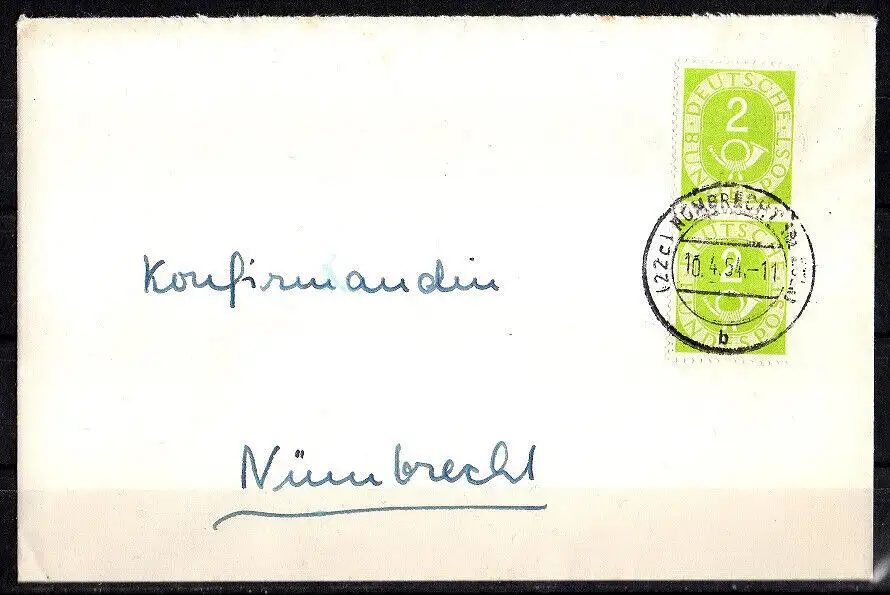 DEUTSCHE BUNDESPOST
2
(22c) NÜMBRECHT
10.4.54.-11
b
DEUTSCHE BUNDESPOST
2
Konfirmandin
Nümbrecht